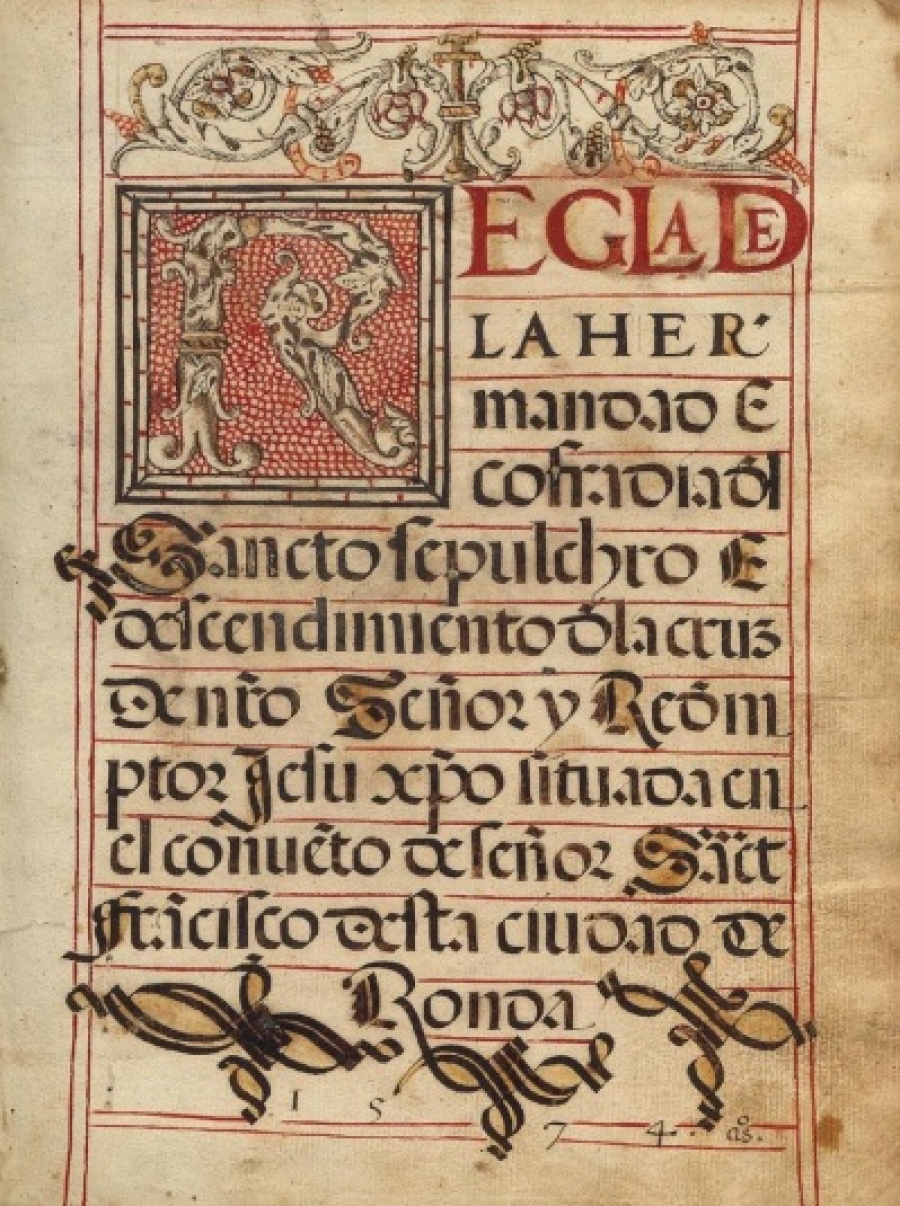 REGLA DE
LA HER
mandad E
cofradia dl
Sancto sepulchro E
descendimiento dla cruz
de nr̃o Señor y Redẽm
ptor Jesu xp̃o situada en
el conuẽto de señor Sãct
Frãcisco desta ciudad de
Ronda
1 5 7 4. aºs.